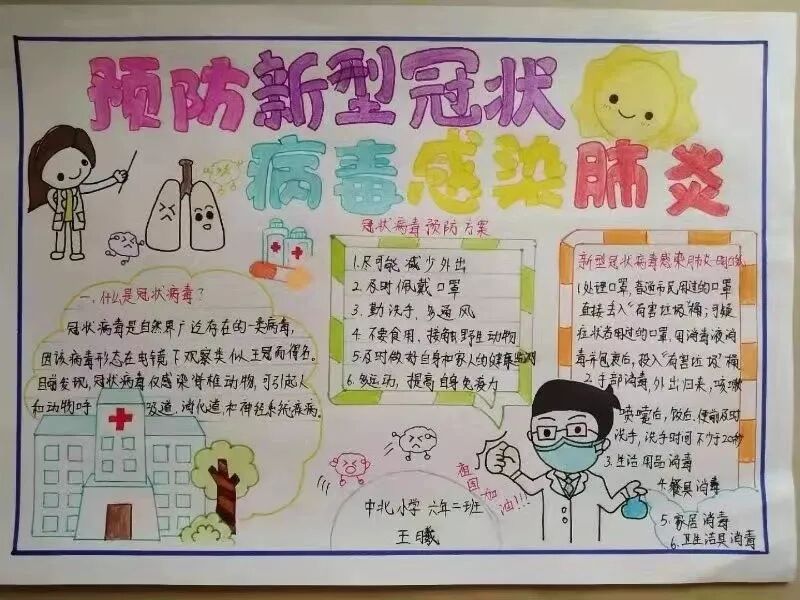 预防新型冠状
病毒感染肺炎
一、什么是冠状病毒？
冠状病毒是自然界广泛存在的一类病毒，
因该病毒形态在电镜下观察类似王冠而得名。
目前发现，冠状病毒仅感染脊椎动物，可引起人
和动物呼吸道、消化道和神经系统疾病。
冠状病毒预防方案
1.尽可能减少外出
2.及时佩戴口罩
3.勤洗手、多通风
4.不要食用、接触野生动物
5.及时做好自身和家人的健康监测
6.多运动，提高自身免疫力
新型冠状病毒感染肺炎
1.处理口罩，普通市民用过的口罩
直接丢入"有害垃圾"桶；可疑
症状者用过的口罩，用消毒液消
毒并包裹后，投入"有害垃圾"桶
2.手部消毒，外出归来，咳嗽
喷嚏后，饭后、便前及时
洗手，洗手时间不少于20秒
3.生活用品消毒
4.餐具消毒
5.家居消毒
6.卫生洁具消毒
祖国加油!!!
中北小学 六年二班
王曦